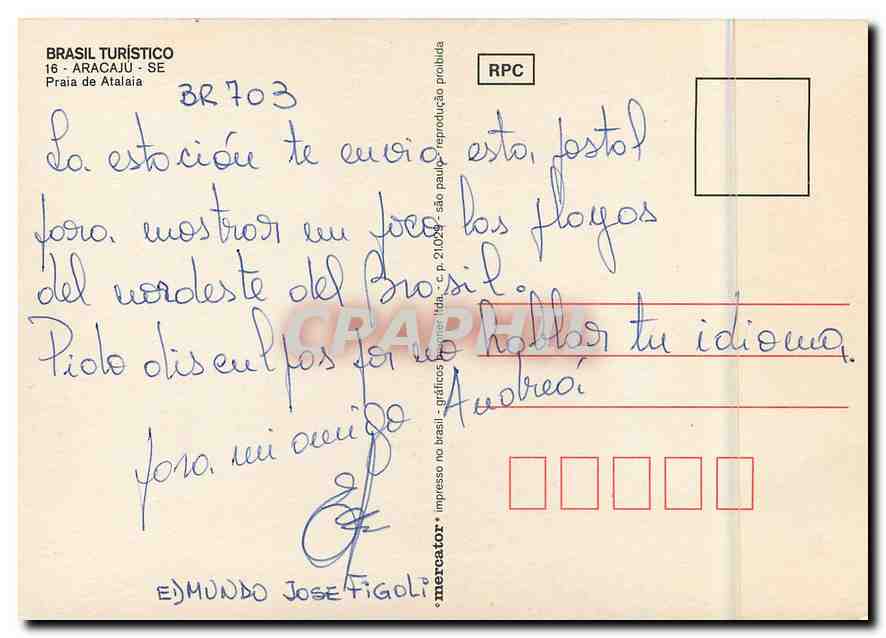 BRASIL TURÍSTICO
16 - ARACAJÚ - SE
Praia de Atalaia
RPC
BR 703
La estación te envia esta postal
para mostrar un poco las playas
del nordeste del Brasil.
Pido disculpas por no hablar tu idioma.
para mi amigo Andrea
EDMUNDO JOSE FIGOLI
°mercator° impresso no brasil - gráficos ltda. - c. p. 21.029 - são paulo - reprodução proibida
CPAPHIL